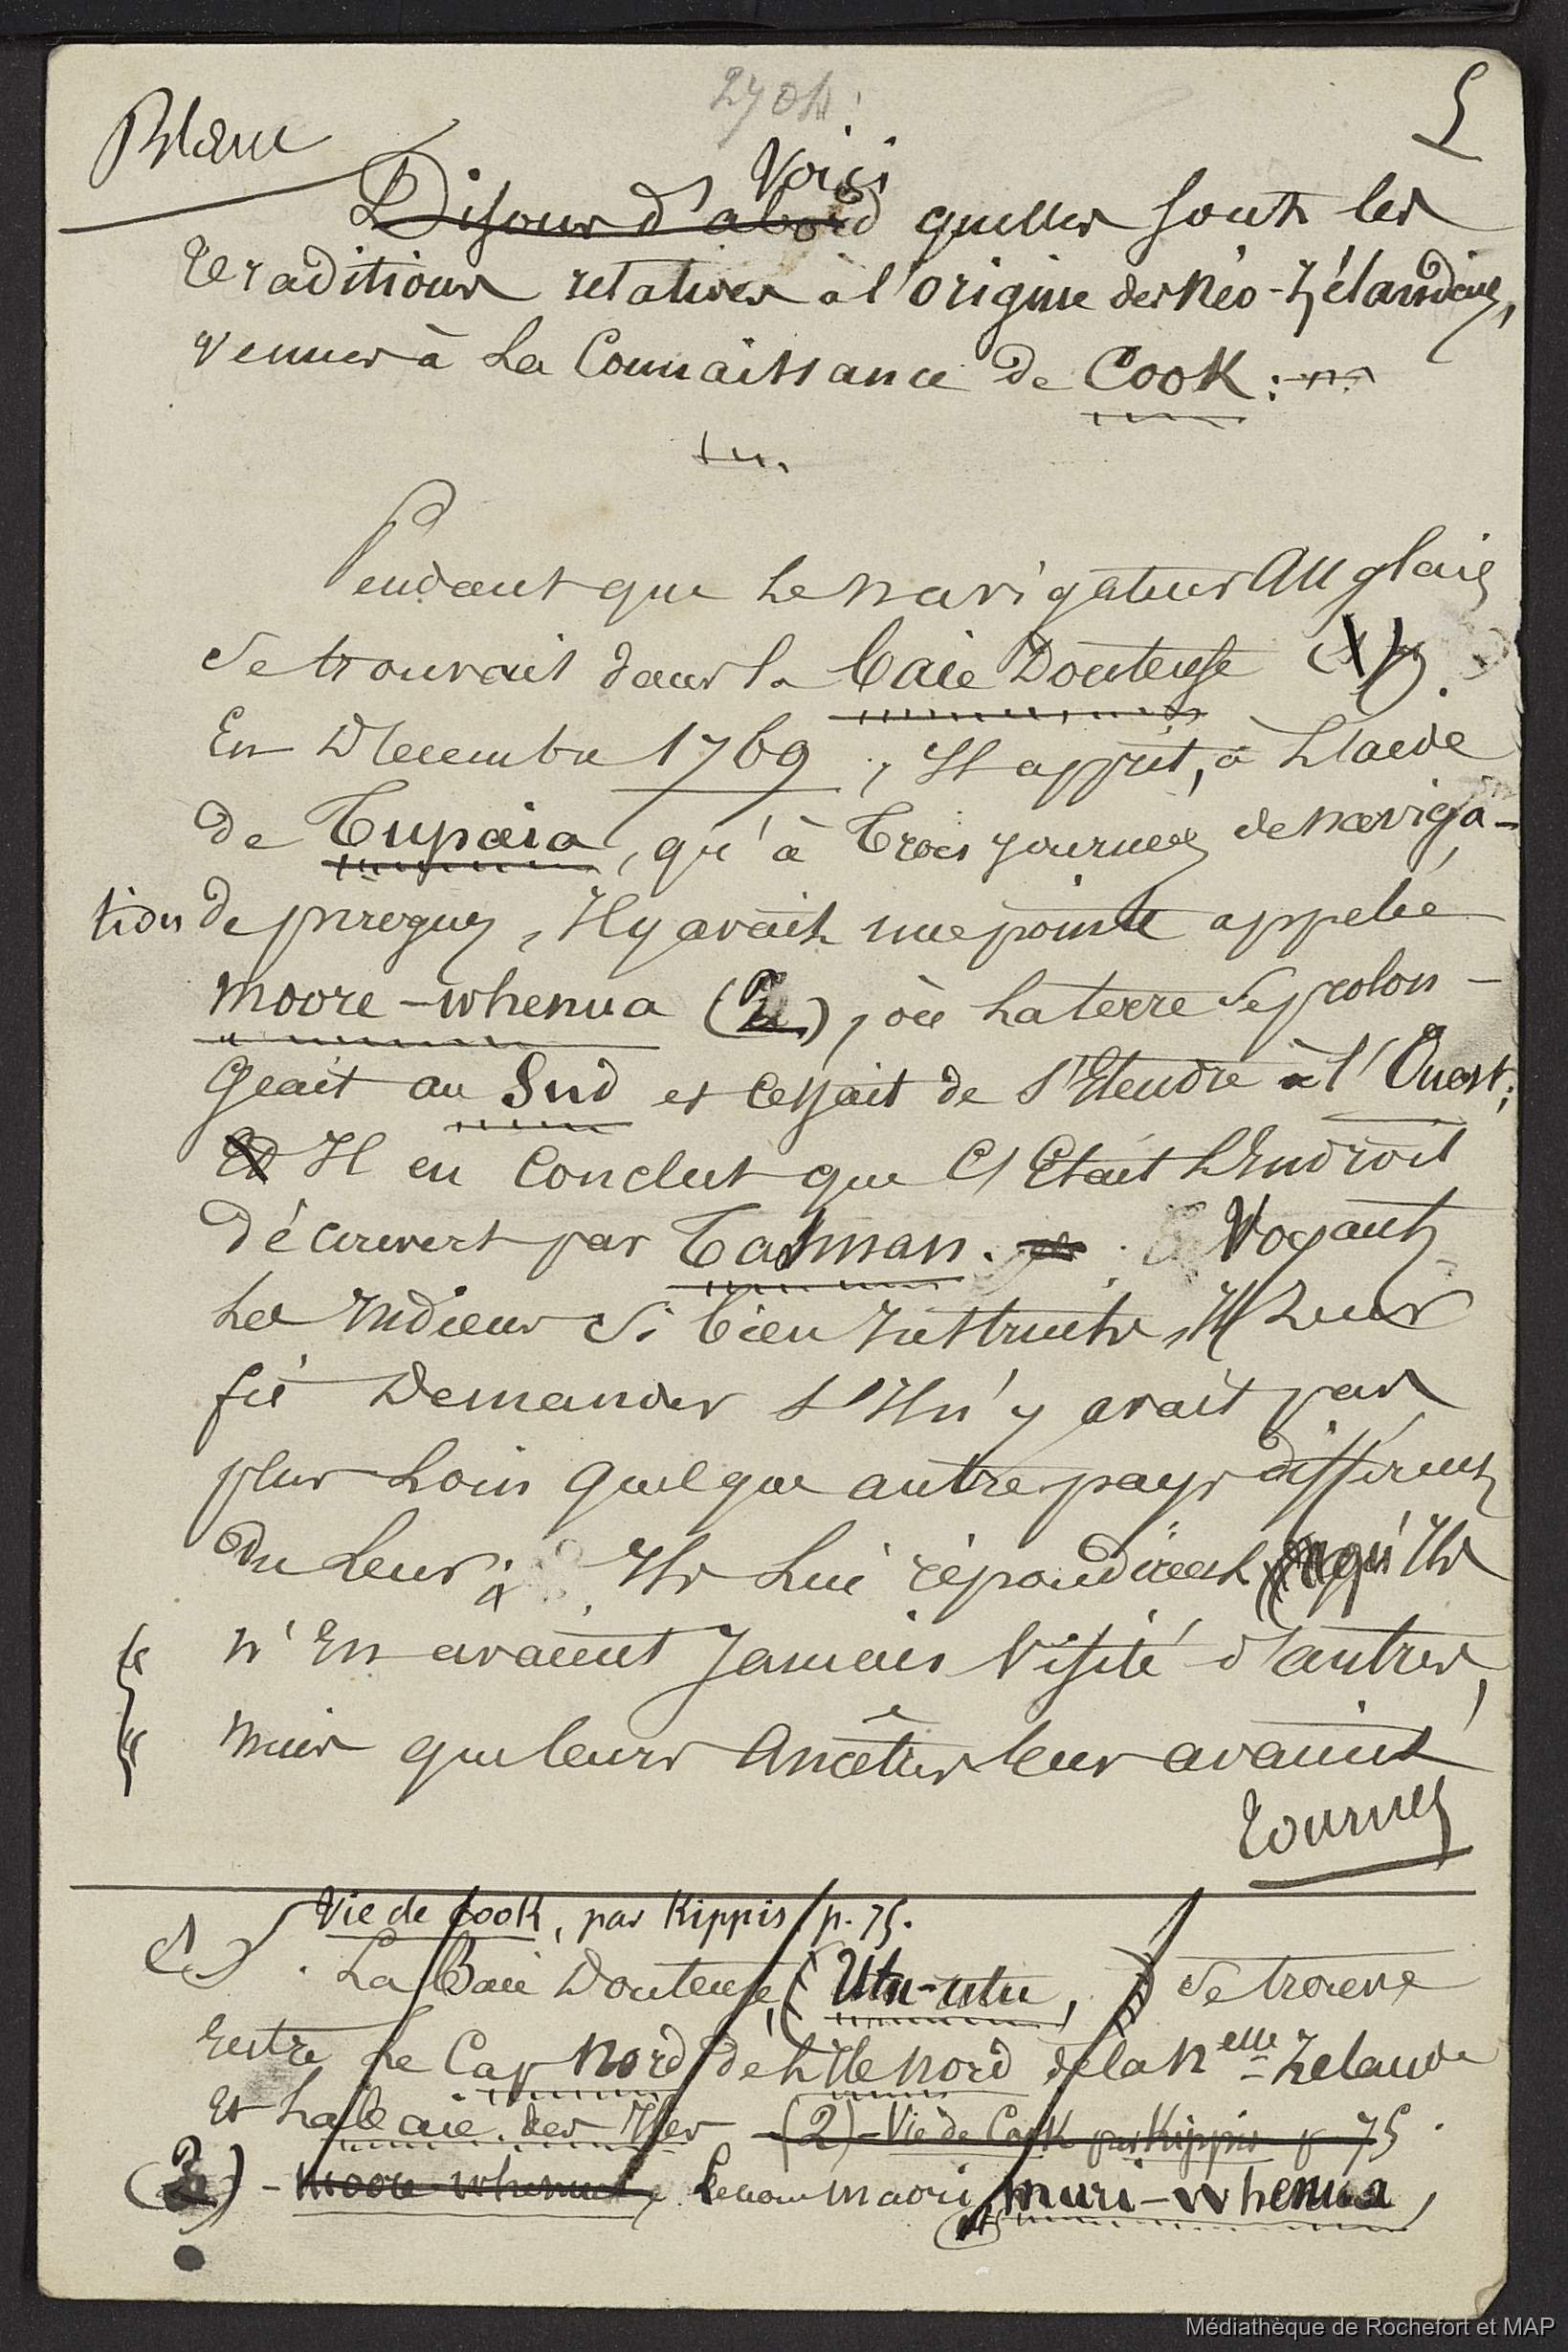 Blanc
5
Voici
Disons d'abord quelles sont les
traditions relatives à l'origine des Néo-Zélandais,
venues à la Connaissance de Cook :
Pendant que le navigateur Anglais
se trouvait dans la baie Douteuse
En Décembre 1769, Il apprit, à l'aide
de Tupaia, qu'à trois journées de naviga-
tion de pirogues, Il y avait une pointe appelée
Moore-whenua (2), où la terre se prolon-
geait au Sud et cessait de s'Etendre à l'Ouest;
Et Il en Conclut que C'Etait l'Endroit
découvert par Tasman. Voyant
les Indiens si bien Instruits, Il leur
fit Demander s'Il n'y avait pas
plus loin quelque autre pays différent
du leur; Ils lui répondirent qu'Ils
n'En avaient Jamais Visité d'autres,
mais que leurs Ancêtres leur avaient
tournez
Vie de Cook, par Kippis, p. 75.
La Baie Douteuse, (Utu-utu,) se trouve
Entre le Cap Nord de l'Ile nord de la Nelle-Zelande
Et la baie des Iles (2) - Vie de Cook par Kippis p 75.
(2) - Moore-whenua, le nom maori, muri-whenua,
Médiathèque de Rochefort et MAP